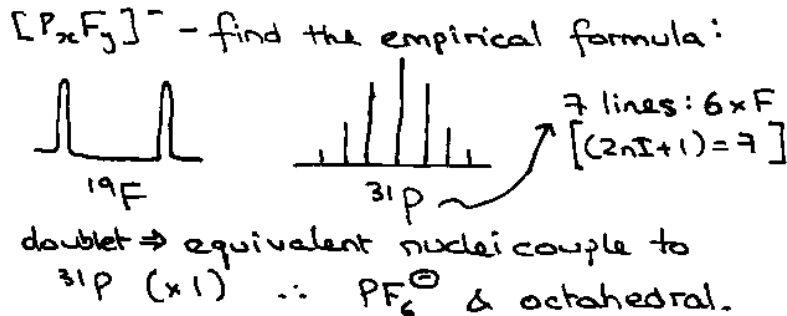 [PxFy]⁻ - find the empirical formula:
7 lines: 6 x F
[(2nI+1) = 7]
¹⁹F
³¹P
doublet ⇒ equivalent nuclei couple to
³¹P (x1) ∴ PF₆⊖ & octahedral.